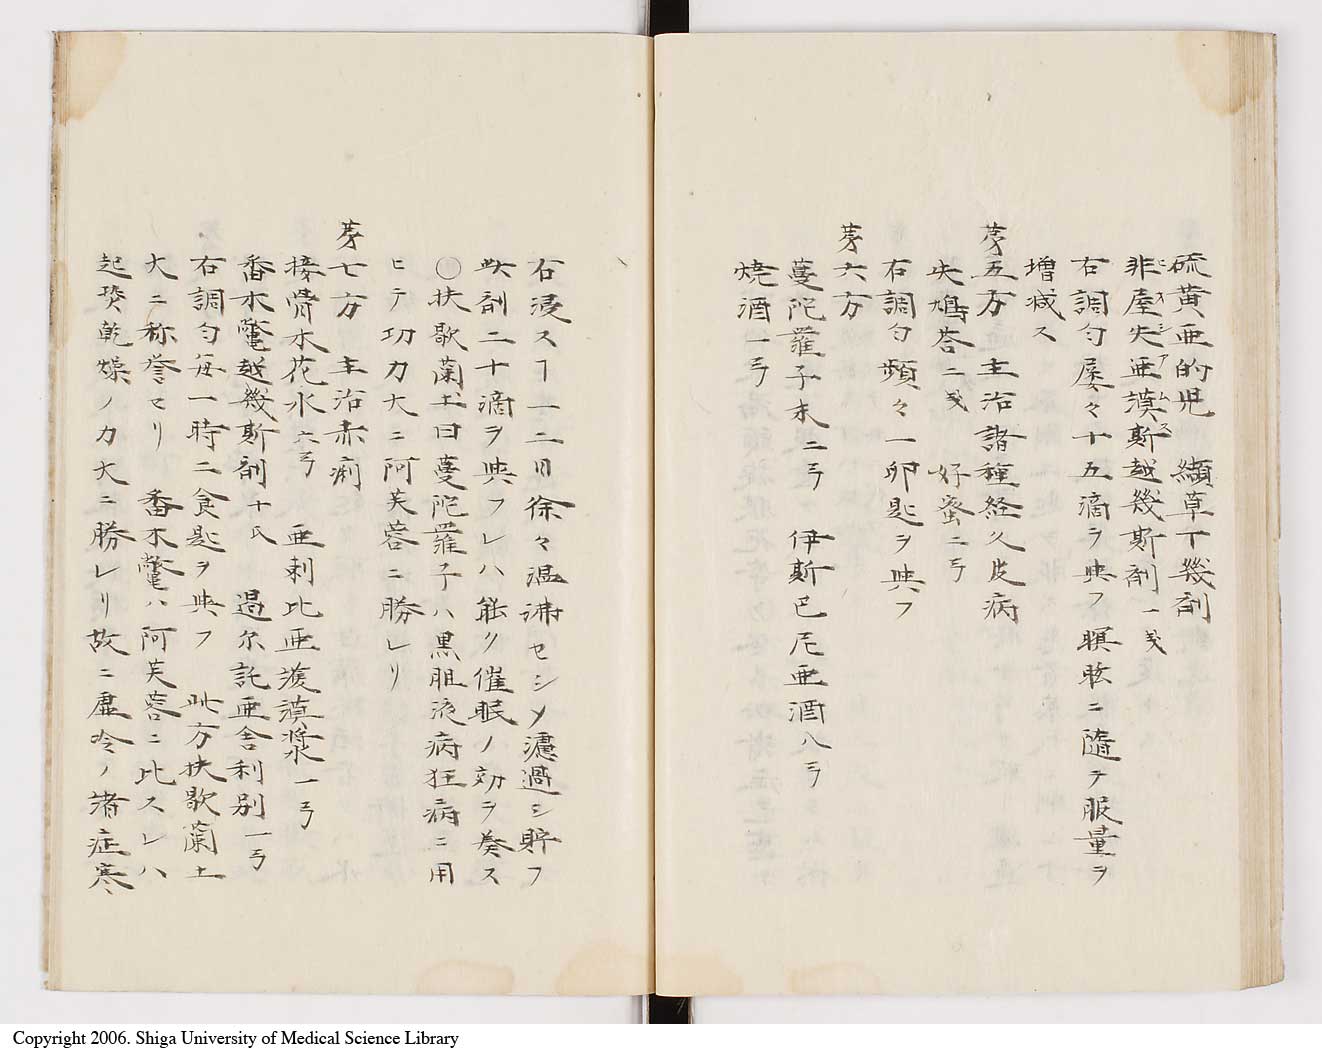 硫黄亜的児 纈草丁幾剤
非屋失亜謨斯越幾斯剤一戔
ヒヨスシアムス
右調勻屡々十五滴ヲ與フ瞑眩ニ随テ服量ヲ
増減ス
苐五方 主治諸種経久皮病
失鳩荅二戔 好蜜二弓
右調勻頻々一卯匙ヲ與フ
苐六方
蔓陀羅子末二弓 伊斯巴尼亜酒八弓
焼酒一弓
右浸スヿ一二日徐々温沸セシメ濾過シ貯フ
此剤二十滴ヲ與フレハ能ク催眠ノ効ヲ奏ス
○扶歇蘭土曰蔓陀羅子ハ黒胆液病狂病ニ用
ヒテ功力大ニ阿芙蓉ニ勝レリ
苐七方 主治赤痢
接骨木花水六弓 亜剌比亜護謨漿一弓
番木鼈越幾斯剤十氏 過尓託亜舎利別一弓
右調勻毎一時二食匙ヲ與フ 此方扶歇蘭土
大ニ称誉セリ 番木鼈ハ阿芙蓉ニ比スレハ
起発乾燥ノ力大ニ勝レリ故ニ虚冷ノ諸症寒
Copyright 2006. Shiga University of Medical Science Library